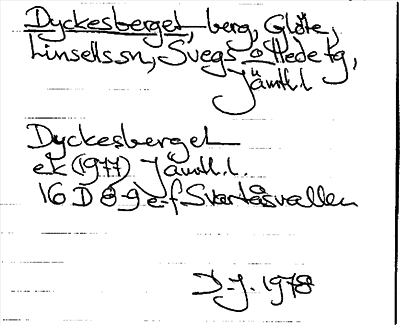 Dyckesberget, berg, Glöte,
Linsells sn, Svegs o Hede tg,
Jämtl. l
Dyckesberget
ek (1977) Jämtl. l.
16 D 8-9 e-f Svartåsvallen
D-J. 1978